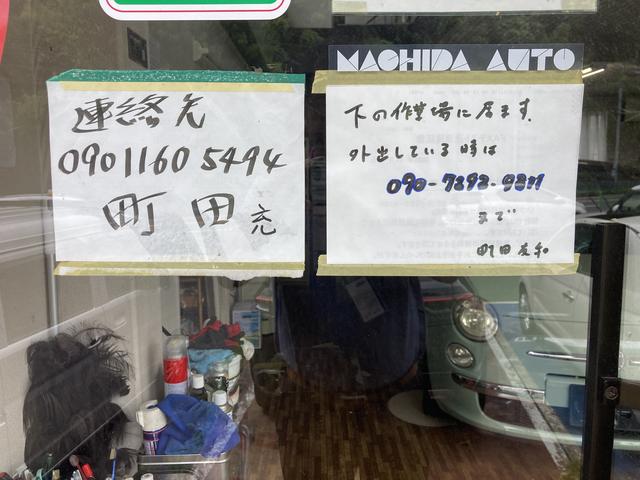 MACHIDA AUTO
連絡先
090 1160 5494
町田 充
下の作業場に居ます。
外出している時は
まで
町田友和